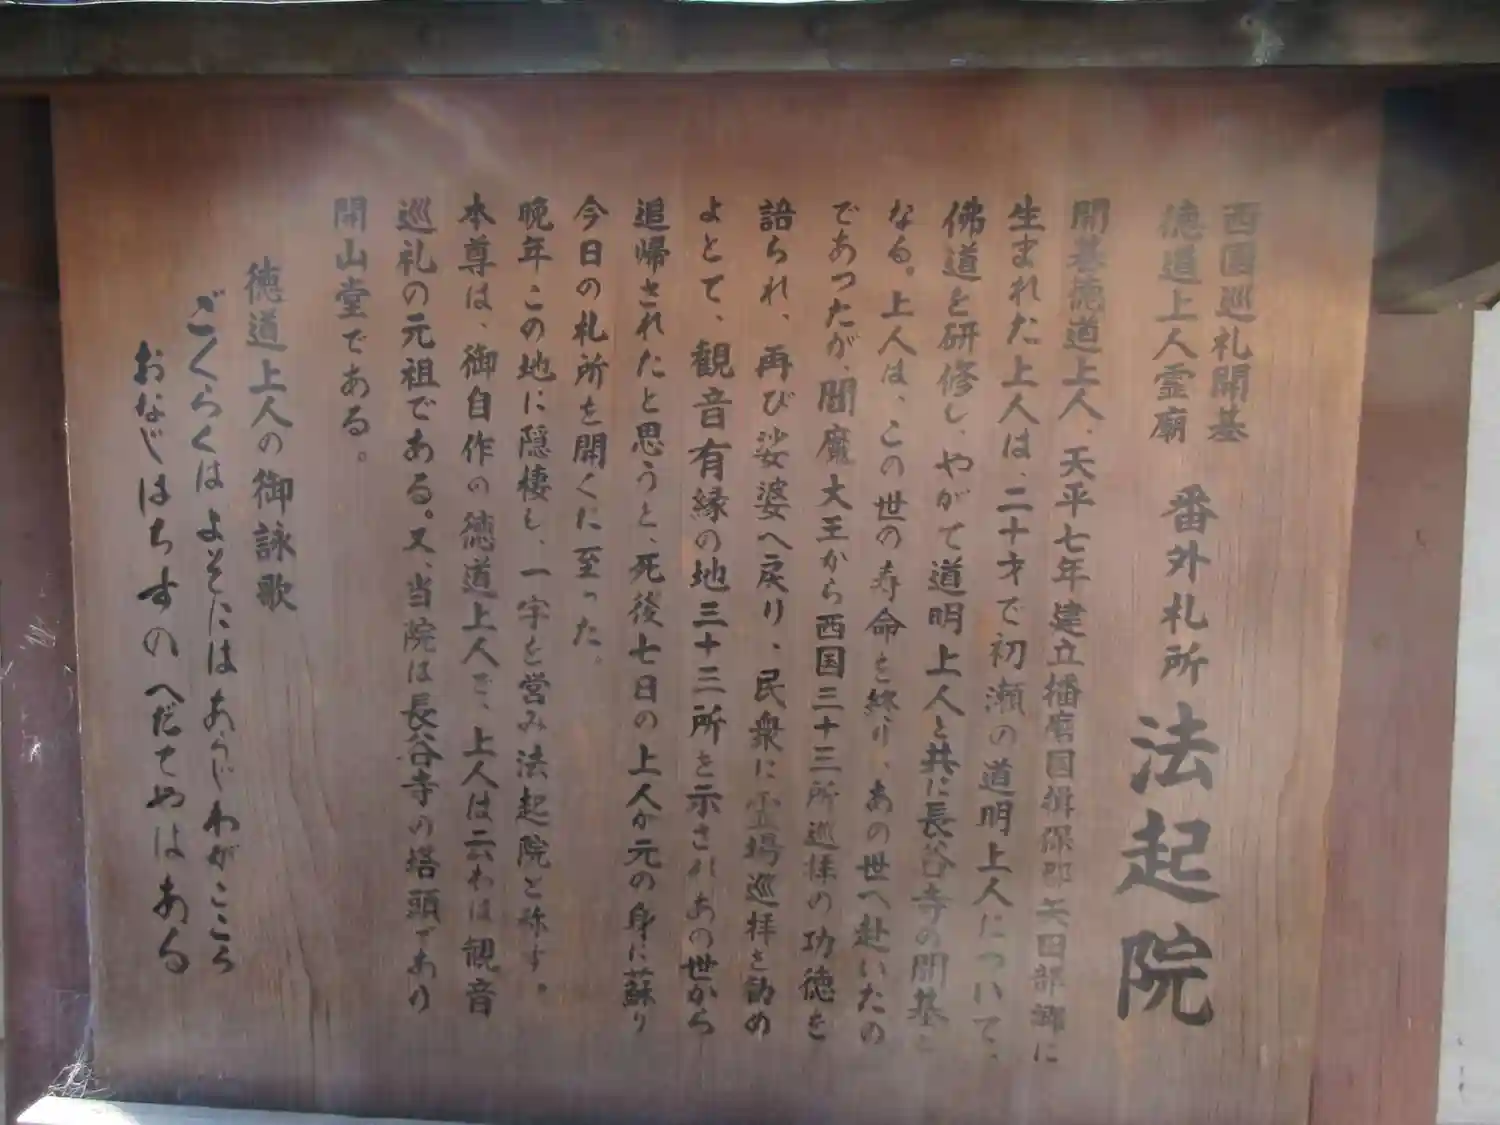 西國巡礼開基
徳道上人霊廟
番外札所 法起院
開基徳道上人、天平七年建立播磨国揖保郡矢田部郷に
生まれた上人は、二十才で初瀬の道明上人について、
佛道を研修し、やがて道明上人と共に長谷寺の開基と
なる。上人は、この世の寿命を終り、あの世へ赴いたの
であったが、閻魔大王から西国三十三所巡拝の功徳を
語られ、再び娑婆へ戻り、民衆に霊場巡拝を訪め
よとて、観音有縁の地三十三所を示されあの世から
追帰されたと思うと、死後七日の上人が元の身に蘇り
今日の札所を開くに至った。
晩年この地に隠棲し、一宇を営み法起院と称す。
本尊は、御自作の徳道上人で、上人は云わば観音
巡礼の元祖である。又、当院は長谷寺の塔頭であり
開山堂である。
徳道上人の御詠歌
ごくらくはよそにはあらじわがこころ
おなじはちすのへだてやはある